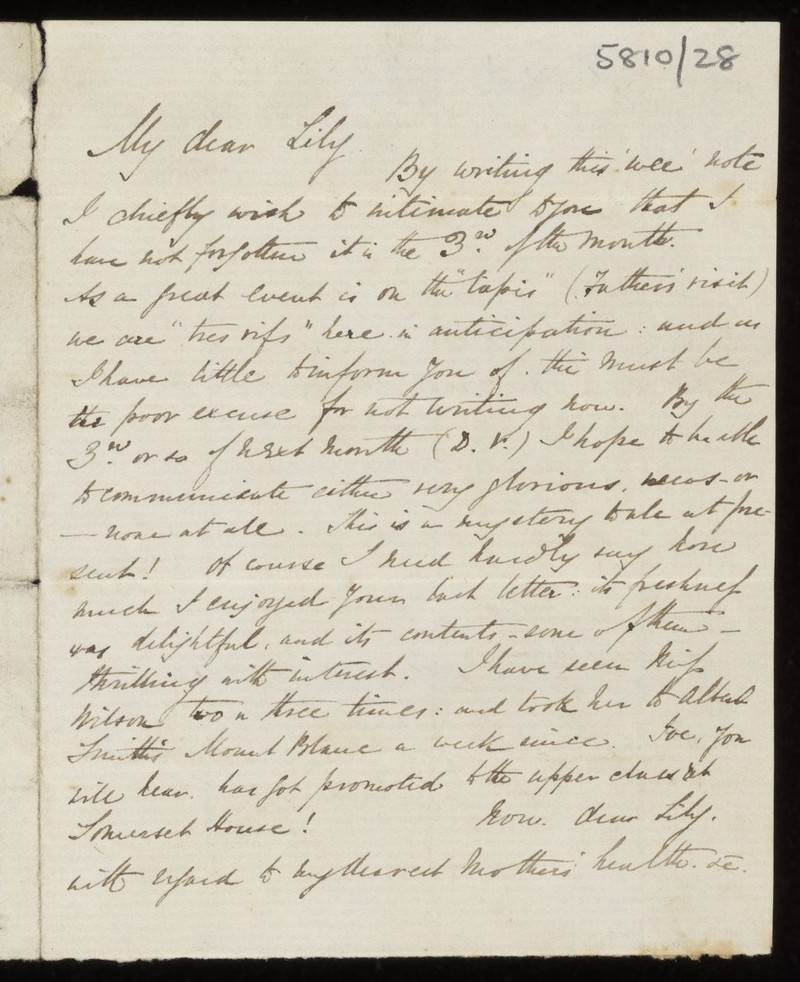 5810/28
My dear Lily
By writing this 'wee' note
I chiefly wish to intimate to you that I
have not forgotten it is the 3rd. of the Month.
As a great event is on the "tapis" (Father's visit)
we are "tres vifs" here in anticipation: and as
I have little to inform you of. this must be
the poor excuse for not writing now. By the
3rd. or so of next Month (D.V.) I hope to be able
to communicate either very glorious, news - or
— none at all. This is a mystery to all at pre-
sent! Of course I need hardly say how
much I enjoyed your last letter: its freshness
was delightful, and its contents - some of them -
thrilling with interest. I have seen Miss
Wilson two or three times: and took her to Albert
Smith's Mount Blanc a week since. Joe, you
will hear. has got promoted to the upper class at
Somerset House! Now. dear Lily.
with regard to my dearest Mother's health. &c.